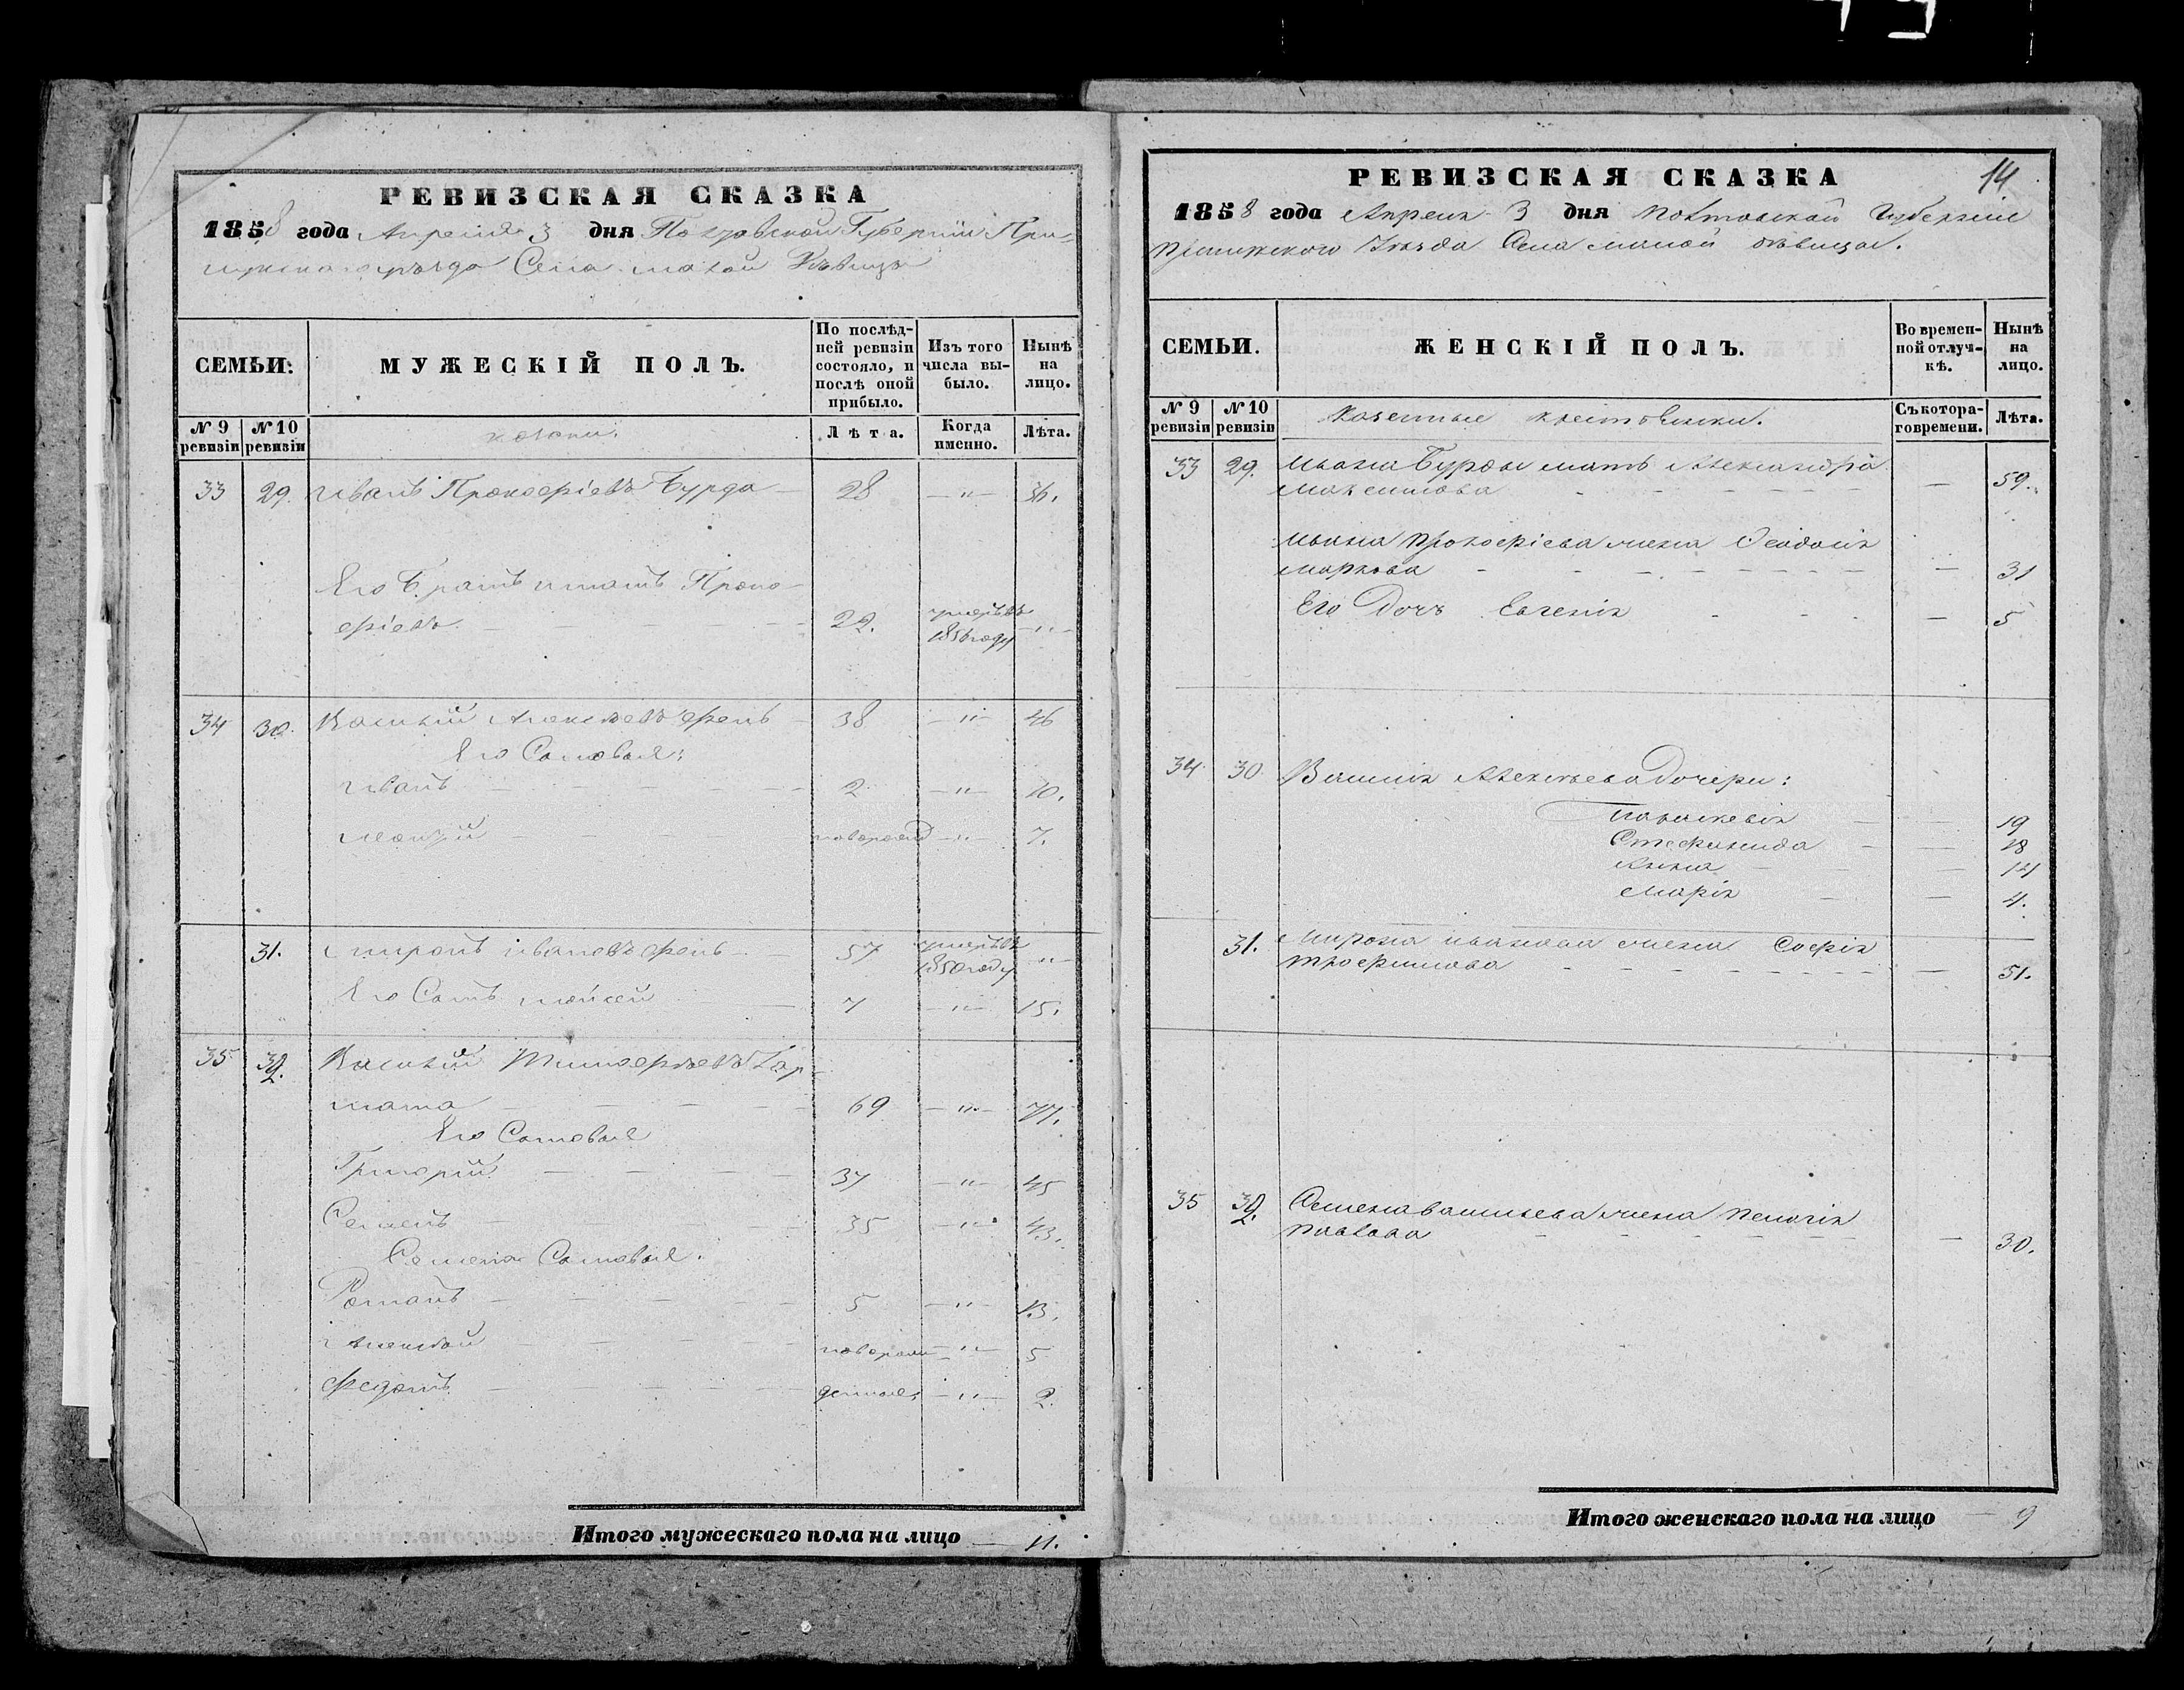 РЕВИЗСКАЯ СКАЗКА
1858 года Апреля 3 дня Полтавской Губернии При-
лукскаго уѣзда Села малой Дѣвицы
СЕМЬИ:
МУЖЕСКІЙ ПОЛЪ.
По послѣд-
ней ревизіи
состояло, и
послѣ оной
прибыло.
Изъ того
числа вы-
было.
Нынѣ
на
лицо.
№ 9
ревизіи
№ 10
ревизіи
козаки.
Лѣта.
Когда
именно.
Лѣта.
33 29. Иванъ Прокофіевъ Бурда 28 — " — 36.
Его Братъ Игнатъ Проко-
фіевъ 22. умеръ въ
185 году — " —
34 30. Василій Алексѣевъ Фень 38 — " — 46
Его Сыновья:
Иванъ 2 — " — 10.
новорожд — " — 7.
31. Миронъ Ивановъ Фень 57 умеръ въ
1850 году — " —
Его Сынъ Мойсей 7 — " — 15.
35 32. Василій Тимофѣевъ Гар-
мата 69 — " — 77.
Его Сыновья
Григорій 37 — " — 45
Семенъ 35 — " — 43.
Семена Сыновья:
Романъ 5 — " — 13.
Алексѣй новорож — " — 5
Федотъ денные — " — 2.
Итого мужескаго пола на лицо — 11.
РЕВИЗСКАЯ СКАЗКА 14
1858 года Апреля 3 дня Полтавской Губерніи
Прилукского Уѣзда Села малой дѣвицы.
СЕМЬИ.
ЖЕНСКІЙ ПОЛЪ.
Во времен-
ной отлуч-
кѣ.
Нынѣ
на
лицо.
№ 9
ревизіи
№ 10
ревизіи
Казенные крестьянки.
Съ котора-
го времени.
Лѣта.
33 29. Ивана Бурды мать Александра
Максимова — 59.
Ивана Прокофіева жена Феодосія
Маркова — 31
Его Дочь Евгенія — 5
34 30. Василія Алексѣева Дочери:
Параскевія — 19
Стефанида — 18
Анна — 14
Марія — 4.
31. Мирона Иванова жена Софія
Трофимова — 51.
35 32. Семена Васильева жена Пелагія
Павлова — 30.
Итого женскаго пола на лицо — 9